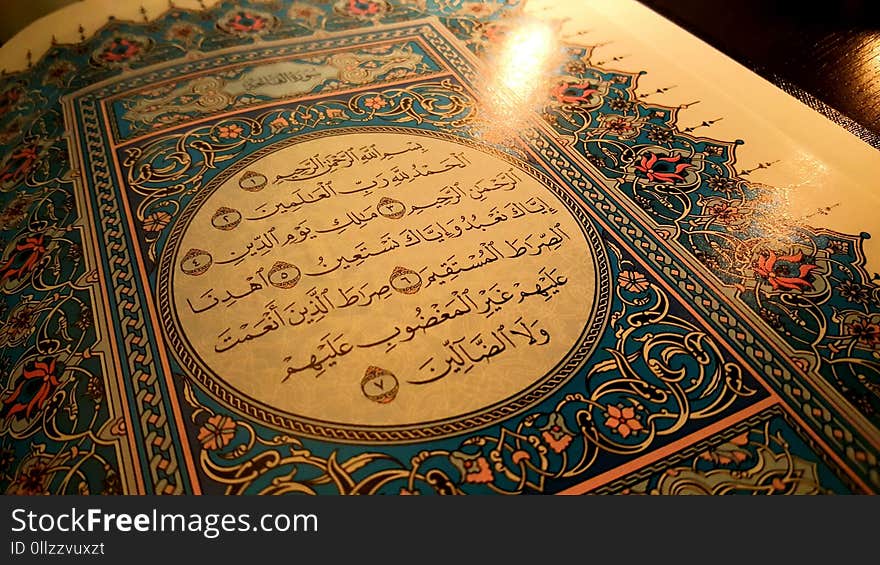 سُورَةُ الفَاتِحَةِ
بِسْمِ ٱللَّهِ ٱلرَّحْمَٰنِ ٱلرَّحِيمِ ١
ٱلْحَمْدُ لِلَّهِ رَبِّ ٱلْعَٰلَمِينَ ٢
ٱلرَّحْمَٰنِ ٱلرَّحِيمِ ٣ مَٰلِكِ يَوْمِ ٱلدِّينِ ٤
إِيَّاكَ نَعْبُدُ وَإِيَّاكَ نَسْتَعِينُ ٥ ٱهْدِنَا
ٱلصِّرَٰطَ ٱلْمُسْتَقِيمَ ٦ صِرَٰطَ ٱلَّذِينَ أَنْعَمْتَ
عَلَيْهِمْ غَيْرِ ٱلْمَغْضُوبِ عَلَيْهِمْ
وَلَا ٱلضَّآلِّينَ ٧
StockFreeImages.com
ID 0llzzvuxzt